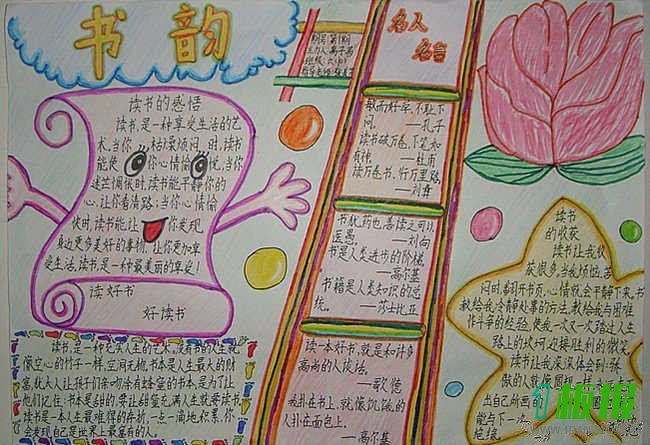 书韵
名人
名言
读书的感悟
读书,是一种享受生活的艺
术。当你枯燥烦闷时,读书
能使你心情愉悦,当你
迷茫惆怅时,读书能平静你的
心,让你看清路;当你心情愉
快时,读书能让你发现
身边更多美好的事物,让你更加享
受生活。读书,是一种最美丽的享受!
读好书
好读书
敏而好学,不耻下
问。
——孔子
读书破万卷,下笔如
有神。
——杜甫
读万卷书,行万里路。
——刘彝
书犹药也,善读之可以
医愚。
——刘向
书是人类进步的阶梯。
——高尔基
书籍是人类知识的总
统。
——莎士比亚
读一本好书,就是和许多
高尚的人谈话。
——歌德
我扑在书上,就像饥饿的
人扑在面包上。
——高尔基
读书
的收获
读书让我收
获很多,当我烦恼、苦
闷时,翻开书页,心情就会平静下来,书
献给我冷静处事的方法,献给我与困难
作斗争的经验,使我一次又一次踏过人生
路上的坎坷,迎接胜利的微笑。
读书让我深深体会到:一个
人就像圆规
出自己所画的
能与下一次
读书,是一种充实人生的艺术。没有书的人生就
像空心的竹子一样,空洞无物。书本是人生最大的财
富。犹太人让孩子们亲吻涂有蜂蜜的书本,是为了让
他们记住:书本是甜的,要让甜蜜充满人生就要读书。
读书是一本人生最难得的存折,一点一滴地积累,你
会发现自己是世界上最富有的人。